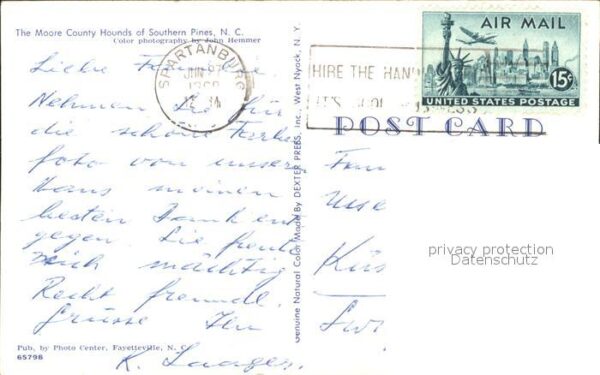 The Moore County Hounds of Southern Pines, N. C.
Color photography by John Hemmer
Liebe
Nehmen Sie für
die schöne Farb
foto von unser
Haus meinen
besten Dank ent
gegen. Sie freute
mich mächtig
Recht freundl.
Grüsse Ihr
K. Laager.
Pub. by Photo Center, Fayetteville, N. C.
65798
Genuine Natural Color Made By DEXTER PRESS, Inc. West Nyack, N. Y.
SPARTANBURG
JUN
HIRE THE HAN
IT'S
AIR MAIL
15¢
UNITED STATES POSTAGE
POST CARD
Fam
Küs
privacy protection
Datenschutz